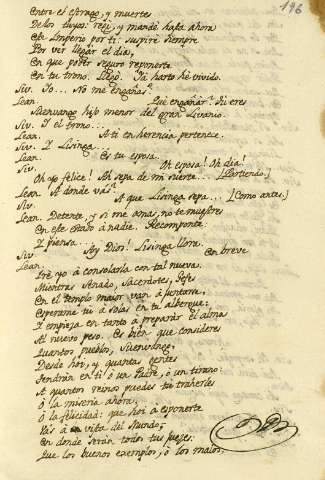 196
Entre el estrago, y muertes
De los tuyos: regi, y mandé hasta ahora
Este Imperio por ti: suspiré siempre
Por ver llegar el dia,
En que poder seguro reponerte
En tu trono. Llegó. Ya harto he vivido.
Siv. Yo... No me engañas?
Lean. Que engañar? Tu eres
Suenvango hijo menor del gran Livanio.
Siv. Y el trono...
Lean. A ti en herencia pertenece.
Siv. Y Lisinga...
Lean. Es tu esposa.
Siv. Oh esposa! Oh dia!
Oh yo felice! Ah sepa de mi suerte... [Partiendo]
Lean. A donde vas?
Siv. A que Lisinga sepa... [Como antes.]
Lean. Detente, y si me amas, no te muestres
En este estado á nadie. Recomponte:
Y piensa...
Siv. Ay Dios! Lisinga llora.
Lean. En breve
Iré yo á consolarla con tal nueva.
Mientras Senado, Sacerdotes, Gefes
En el templo mayor van á juntarse,
Esperame tu á solas en tu albergue:
Y empieza en tanto á preparár el alma
Al nuevo peso. Es bien que consideres
Quantos pueblos, Suenvango,
Desde hoi, y quantas gentes
Tendrán en ti ó un Padre, ó un tirano:
A quantos reinos puedes tu traherles
O la miseria ahora,
O la felicidad: que hoi á exponerte
Vás á vista del Mundo;
En donde serán todos tus jueces:
Que los buenos exemplos, ó los malos,